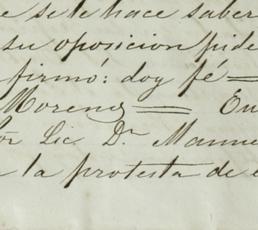 e se le hace saber
su oposicion pide
firmó: doy fé=
Moreno = En
or Lic Dr. Manue
a la protesta de